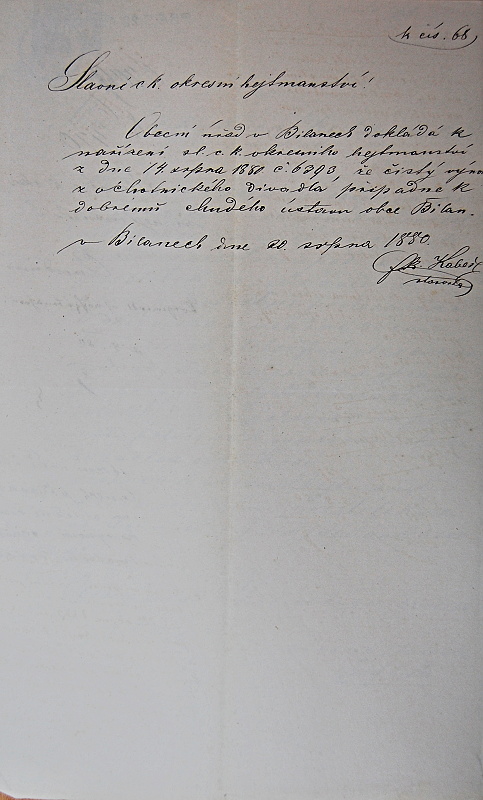 k čís. 66
Slavné c k. okresní hejtmanství!
Obecní úřad v Bilanech dokládá k
nařízení sl. c. k. okresního hejtmanství
z dne 14. srpna 1880 č. 6393, že čistý výno
z ochotnického divadla připadne k
dobrému chudého ústavu obce Bilan.
v Bilanech dne 20. srpna 1880.
starosta